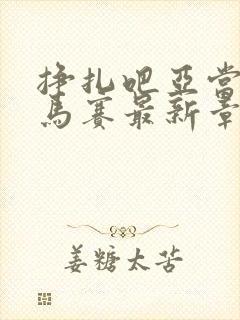 挣扎吧亚当
马赛最新章
姜糖太苦